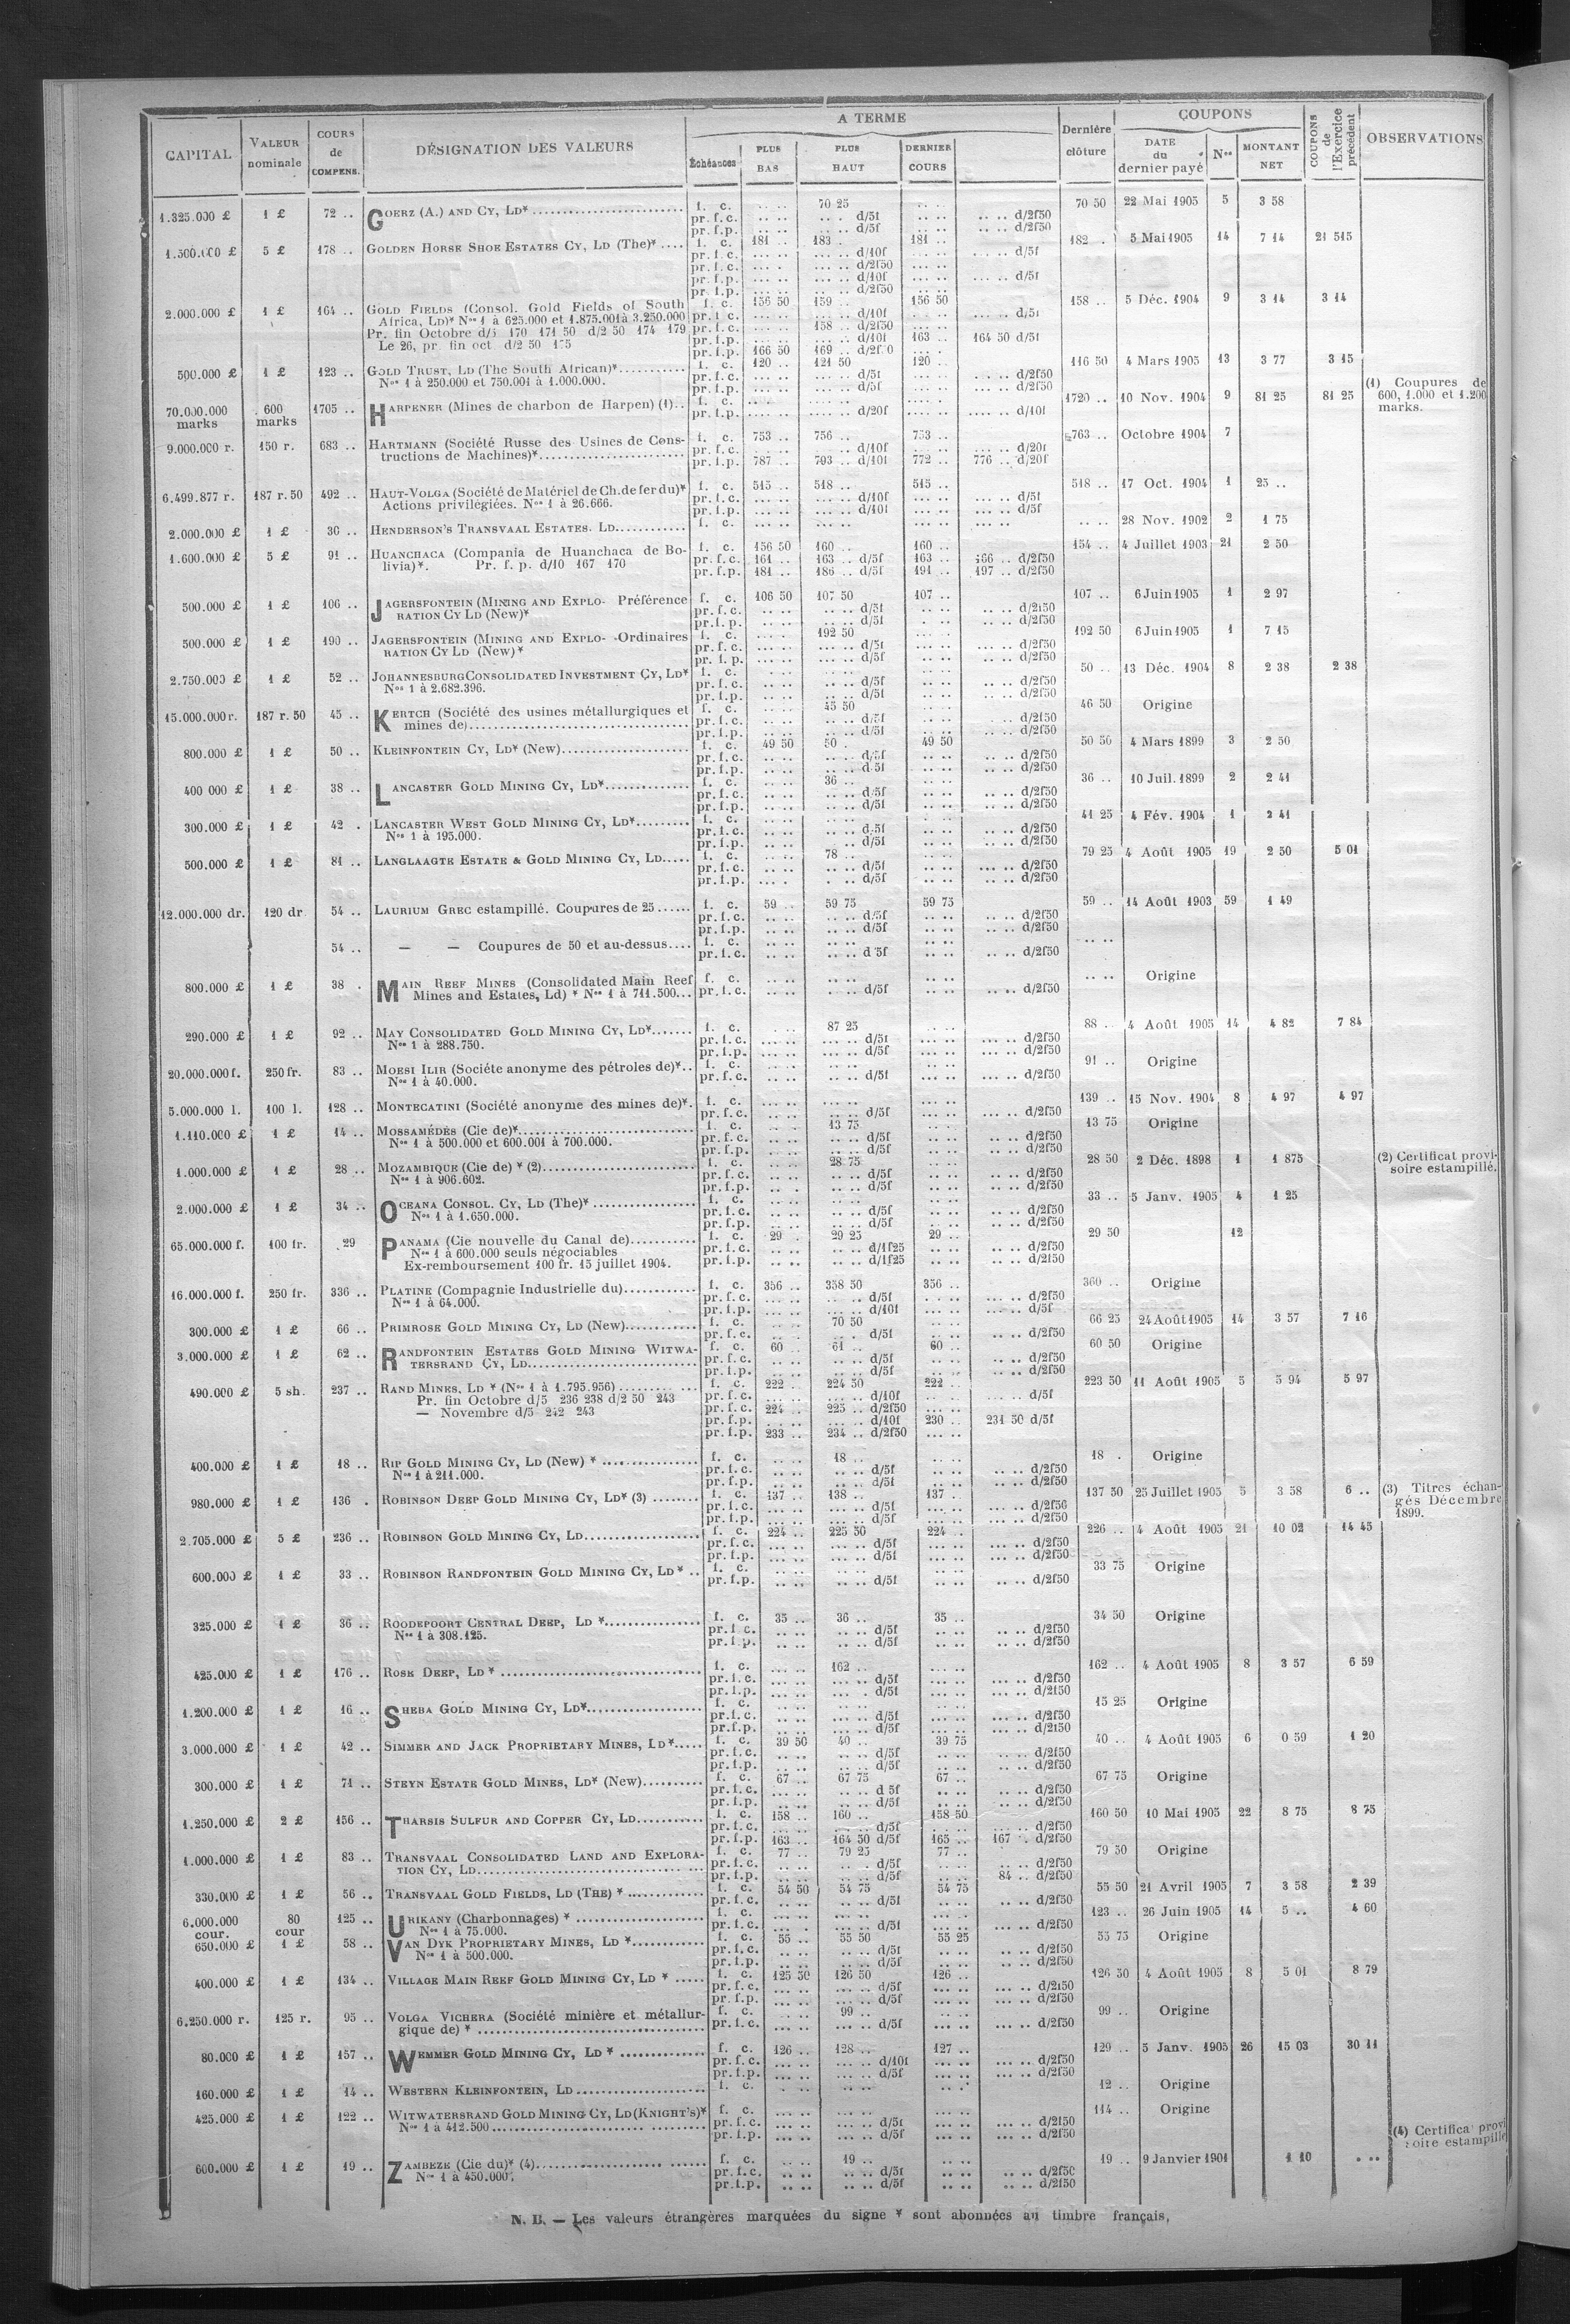 CAPITAL | VALEUR nominale | COURS de COMPENS. | DÉSIGNATION DES VALEURS | A TERME | Dernière clôture | COUPONS | COUPONS de l'Exercice précédent | OBSERVATIONS
Echéances | PLUS BAS | PLUS HAUT | DERNIER COURS | DATE du dernier payé | Nos | MONTANT NET
1.325.000 £ 1 £ 72 .. GOERZ (A.) AND CY, LD* f. c. 70 25 70 50 22 Mai 1905 5 3 58
pr. f.c. d/5f d/2f50
pr. f.p. d/5f d/2f50
1.500.000 £ 5 £ 178 .. GOLDEN HORSE SHOE ESTATES CY, LD (The)* f. c. 181 .. 183 . 181 .. 182 . 5 Mai 1905 14 7 14 21 515
pr. f.c. d/10f d/5f
pr. f.c. d/2f50
pr. f.p. d/10f d/5f
pr. f.p. d/2f50
2.000.000 £ 1 £ 164 .. GOLD FIELDS (Consol. Gold Fields of South f. c. 156 50 159 .. 156 50 158 .. 5 Déc. 1904 9 3 14 3 14
Africa, LD)* Nos 1 à 625.000 et 1.875.001 à 3.250.000 pr. f.c. d/10f d/5f
Pr. fin Octobre d/5 170 171 50 d/2 50 174 179 pr. f.c. 158 .. d/2f50
Le 26, pr fin oct d/2 50 pr. f.p. d/10f 163 .. 164 50 d/5f
pr. f.p. 166 50 169 ..
500.000 £ 1 £ 123 .. GOLD TRUST, LD (The South African)* f. c. 120 .. 121 50 120 .. 116 50 4 Mars 1905 13 3 77 3 15
Nos 1 à 250.000 et 750.001 à 1.000.000. pr. f.c. d/5f d/2f50
pr. f.p. d/5f d/2f50
70.000.000 marks 600 marks 1705 .. HARPENER (Mines de charbon de Harpen) (1).. f. c. 1720 .. 10 Nov. 1904 9 81 25 81 25 (1) Coupures de 600, 1.000 et 1.200 marks.
pr. f.p. d/20f d/10f
9.000.000 r. 150 r. 683 .. HARTMANN (Société Russe des Usines de Cons- f. c. 753 .. 756 .. 753 .. 763 .. Octobre 1904 7
tructions de Machines)* pr. f.c. d/10f d/20f
pr. f.p. 787 .. 793 .. d/10f 772 .. 776 .. d/20f
6.499.877 r. 187 r. 50 492 .. HAUT-VOLGA (Société de Matériel de Ch. de fer du)* f. c. 515 .. 518 .. 515 .. 518 .. 17 Oct. 1904 1 25 ..
Actions privilégiées. Nos 1 à 26.666. pr. f.c. d/10f d/5f
pr. f.p. d/10f d/5f
2.000.000 £ 1 £ 30 .. HENDERSON'S TRANSVAAL ESTATES. LD f. c. 28 Nov. 1902 2 1 75
1.600.000 £ 5 £ 91 .. HUANCHACA (Compania de Huanchaca de Bo- f. c. 156 50 160 .. 160 .. 154 .. 4 Juillet 1903 21 2 50
livia)*. Pr. f. p. d/10 167 170 pr. f.c. 161 .. 163 .. d/5f 163 .. 166 .. d/2f50
pr. f.p. 181 .. 186 .. d/5f 191 .. 197 .. d/2f50
500.000 £ 1 £ 106 .. JAGERSFONTEIN (MINING AND EXPLO- Préférence f. c. 106 50 107 50 107 .. 107 .. 6 Juin 1905 1 2 97
RATION CY LD (New)* pr. f.c. d/5f d/2f50
pr. f.p. d/5f d/2f50
500.000 £ 1 £ 190 .. JAGERSFONTEIN (MINING AND EXPLO- Ordinaires f. c. 192 50 192 50 6 Juin 1905 1 7 15
RATION CY LD (New)* pr. f.c. d/5f d/2f50
pr. f.p. d/5f d/2f50
2.750.000 £ 1 £ 52 .. JOHANNESBURG CONSOLIDATED INVESTMENT CY, LD* f. c. 50 .. 13 Déc. 1904 8 2 38 2 38
Nos 1 à 2.682.396. pr. f.c. d/5f d/2f50
pr. f.p. d/5f d/2f50
15.000.000 r. 187 r. 50 45 .. KERTCH (Société des usines métallurgiques et f. c. 45 50 46 50 Origine
mines de) pr. f.c. d/5f d/2f50
pr. f.p. d/5f d/2f50
800.000 £ 1 £ 50 .. KLEINFONTEIN CY, LD* (New) f. c. 49 50 50 . 49 50 50 50 4 Mars 1899 3 2 50
pr. f.c. d/5f d/2f50
pr. f.p. d/5f d/2f50
400 000 £ 1 £ 38 .. LANCASTER GOLD MINING CY, LD* f. c. 36 .. 36 .. 10 Juil. 1899 2 2 41
pr. f.c. d/5f d/2f50
pr. f.p. d/5f d/2f50
300.000 £ 1 £ 42 . LANCASTER WEST GOLD MINING CY, LD* f. c. 41 25 4 Fév. 1904 1 2 41
Nos 1 à 195.000. pr. f.c. d/5f d/2f50
pr. f.p. d/5f d/2f50
500.000 £ 1 £ 81 .. LANGLAAGTE ESTATE & GOLD MINING CY, LD f. c. 78 .. 79 25 4 Août 1905 19 2 50 5 01
pr. f.c. d/5f d/2f50
pr. f.p. d/5f d/2f50
12.000.000 dr. 120 dr. 54 .. LAURIUM GREC estampillé. Coupures de 25 f. c. 59 .. 59 75 59 75 59 .. 14 Août 1903 59 1 49
pr. f.c. d/5f d/2f50
pr. f.p. d/5f d/2f50
54 .. — — Coupures de 50 et au-dessus f. c.
pr. f.c. d 5f d/2f50
800.000 £ 1 £ 38 . MAIN REEF MINES (Consolidated Main Reef f. c. Origine
Mines and Estates, Ld) * Nos 1 à 711.500 pr. f.c. d/5f d/2f50
290.000 £ 1 £ 92 .. MAY CONSOLIDATED GOLD MINING CY, LD* f. c. 87 25 88 .. 4 Août 1905 14 4 82 7 84
Nos 1 à 288.750. pr. f.c. d/5f d/2f50
pr. f.p. d/5f d/2f50
20.000.000 f. 250 fr. 83 .. MOESI ILIR (Société anonyme des pétroles de)* f. c. 91 .. Origine
Nos 1 à 40.000. pr. f.c. d/5f d/2f50
5.000.000 l. 100 l. 128 .. MONTECATINI (Société anonyme des mines de)*. f. c. 139 .. 15 Nov. 1904 8 4 97 4 97
pr. f.c. d/5f d/2f50
1.110.000 £ 1 £ 14 .. MOSSAMÉDÈS (Cie de)* f. c. 13 75 13 75 Origine
Nos 1 à 500.000 et 600.001 à 700.000. pr. f.c. d/5f d/2f50
pr. f.p. d/5f d/2f50
1.000.000 £ 1 £ 28 .. MOZAMBIQUE (Cie de) * (2) f. c. 28 75 28 50 2 Déc. 1898 1 1 875 (2) Certificat provi- soire estampillé.
Nos 1 à 906.602. pr. f.c. d/5f d/2f50
pr. f.p. d/5f d/2f50
2.000.000 £ 1 £ 34 .. OCEANA CONSOL. CY, LD (The)* f. c. 33 .. 5 Janv. 1905 4 1 25
Nos 1 à 1.650.000. pr. f.c. d/5f d/2f50
pr. f.p. d/5f d/2f50
65.000.000 f. 100 fr. 29 PANAMA (Cie nouvelle du Canal de) f. c. 29 . 29 25 29 .. 29 50 12
Nos 1 à 600.000 seuls négociables pr. f.c. d/1f25 d/2f50
Ex-remboursement 100 fr. 15 juillet 1904. pr. f.p. d/1f25 d/2f50
16.000.000 f. 250 fr. 336 .. PLATINE (Compagnie Industrielle du) f. c. 356 .. 358 50 356 .. 360 .. Origine
Nos 1 à 64.000. pr. f.c. d/5f d/2f50
pr. f.p. d/10f d/5f
300.000 £ 1 £ 66 .. PRIMROSE GOLD MINING CY, LD (New) f. c. 70 50 66 25 24 Août 1905 14 3 57 7 16
pr. f.c. d/5f d/2f50
3.000.000 £ 1 £ 62 .. RANDFONTEIN ESTATES GOLD MINING WITWA- f. c. 60 .. 61 .. 60 .. 60 50 Origine
TERSRAND CY, LD pr. f.c. d/5f d/2f50
pr. f.p. d/5f d/2f50
490.000 £ 5 sh. 237 .. RAND MINES, LD * (Nos 1 à 1.795.956) f. c. 222 .. 224 50 222 .. 223 50 11 Août 1905 5 5 94 5 97
Pr. fin Octobre d/5 236 238 d/2 50 243 pr. f.c. d/10f d/5f
— Novembre d/5 242 243 pr. f.c. 224 .. 225 .. d/2f50
pr. f.p. d/10f 230 .. 231 50 d/5f
pr. f.p. 233 .. 234 .. d/2f50
400.000 £ 1 £ 18 .. RIP GOLD MINING CY, LD (New) * f. c. 18 .. 18 . Origine
Nos 1 à 211.000. pr. f.c. d/5f d/2f50
pr. f.p. d/5f d/2f50
980.000 £ 1 £ 136 . ROBINSON DEEP GOLD MINING CY, LD* (3) f. c. 137 .. 138 .. 137 .. 137 50 25 Juillet 1905 5 3 58 6 .. (3) Titres échan- gés Décembre 1899.
pr. f.c. d/5f d/2f50
pr. f.p. d/5f d/2f50
2.705.000 £ 5 £ 236 .. ROBINSON GOLD MINING CY, LD f. c. 224 .. 225 50 224 .. 226 .. 4 Août 1905 21 10 02 14 45
pr. f.c. d/5f d/2f50
pr. f.p. d/5f d/2f50
600.000 £ 1 £ 33 .. ROBINSON RANDFONTEIN GOLD MINING CY, LD* f. c. 33 75 Origine
pr. f.p. d/5f d/2f50
325.000 £ 1 £ 36 .. ROODEPOORT CENTRAL DEEP, LD * f. c. 35 .. 36 .. 35 .. 34 50 Origine
Nos 1 à 308.125. pr. f.c. d/5f d/2f50
pr. f.p. d/5f d/2f50
425.000 £ 1 £ 176 .. ROSE DEEP, LD * f. c. 162 .. 162 .. 4 Août 1905 8 3 57 6 59
pr. f.c. d/5f d/2f50
pr. f.p. d/5f d/2f50
1.200.000 £ 1 £ 16 .. SHEBA GOLD MINING CY, LD* f. c. 15 25 Origine
pr. f.c. d/5f d/2f50
pr. f.p. d/5f d/2f50
3.000.000 £ 1 £ 42 .. SIMMER AND JACK PROPRIETARY MINES, LD* f. c. 39 50 40 .. 39 75 40 .. 4 Août 1905 6 0 59 1 20
pr. f.c. d/5f d/2f50
pr. f.p. d/5f d/2f50
300.000 £ 1 £ 71 .. STEYN ESTATE GOLD MINES, LD* (New) f. c. 67 .. 67 75 67 .. 67 75 Origine
pr. f.c. d 5f d/2f50
pr. f.p. d/5f d/2f50
1.250.000 £ 2 £ 156 .. THARSIS SULFUR AND COPPER CY, LD f. c. 158 .. 160 .. 158 50 160 50 10 Mai 1905 22 8 75 8 75
pr. f.c. d/5f d/2f50
pr. f.p. 163 .. 164 50 d/5f 165 .. 167 .. d/2f50
1.000.000 £ 1 £ 83 .. TRANSVAAL CONSOLIDATED LAND AND EXPLORA- f. c. 77 .. 79 25 77 .. 79 50 Origine
TION CY, LD pr. f.c. d/5f d/2f50
pr. f.p. d/5f 84 .. d/2f50
330.000 £ 1 £ 56 .. TRANSVAAL GOLD FIELDS, LD (THE) * f. c. 54 50 54 75 54 75 55 50 21 Avril 1905 7 3 58 2 39
pr. f.c. d/5f d/2f50
6.000.000 cour. 80 cour 125 .. URIKANY (Charbonnages) * f. c. 123 .. 26 Juin 1905 14 5 .. 4 60
Nos 1 à 75.000. pr. f.c. d/5f d/2f50
650.000 £ 1 £ 58 .. VAN DYK PROPRIETARY MINES, LD * f. c. 55 .. 55 50 55 25 55 75 Origine
Nos 1 à 500.000. pr. f.c. d/5f d/2f50
pr. f.p. d/5f d/2f50
400.000 £ 1 £ 134 .. VILLAGE MAIN REEF GOLD MINING CY, LD * f. c. 125 50 126 50 126 .. 126 50 4 Août 1905 8 5 01 8 79
pr. f.c. d/5f d/2f50
pr. f.p. d/5f d/2f50
6.250.000 r. 125 r. 95 .. VOLGA VICHERA (Société minière et métallur- f. c. 99 .. 99 .. Origine
gique de) * pr. f.c. d/5f d/2f50
80.000 £ 1 £ 157 .. WEMMER GOLD MINING CY, LD * f. c. 126 .. 128 .. 127 .. 129 .. 5 Janv. 1905 26 15 03 30 11
pr. f.c. d/10f d/2f50
pr. f.p. d/5f d/2f50
160.000 £ 1 £ 14 .. WESTERN KLEINFONTEIN, LD f. c. 12 .. Origine
425.000 £ 1 £ 122 .. WITWATERSRAND GOLD MINING CY, LD (KNIGHT'S)* f. c. 114 .. Origine
Nos 1 à 412.500 pr. f.c. d/5f d/2f50
pr. f.p. d/5f d/2f50
600.000 £ 1 £ 19 .. ZAMBEZE (Cie du)* (4) f. c. 19 .. 19 .. 9 Janvier 1901 1 10 (4) Certificat provi soire estampillé
Nos 1 à 450.000. pr. f.c. d/5f d/2f50
pr. f.p. d/5f d/2f50
N. B. — Les valeurs étrangères marquées du signe * sont abonnées au timbre français,